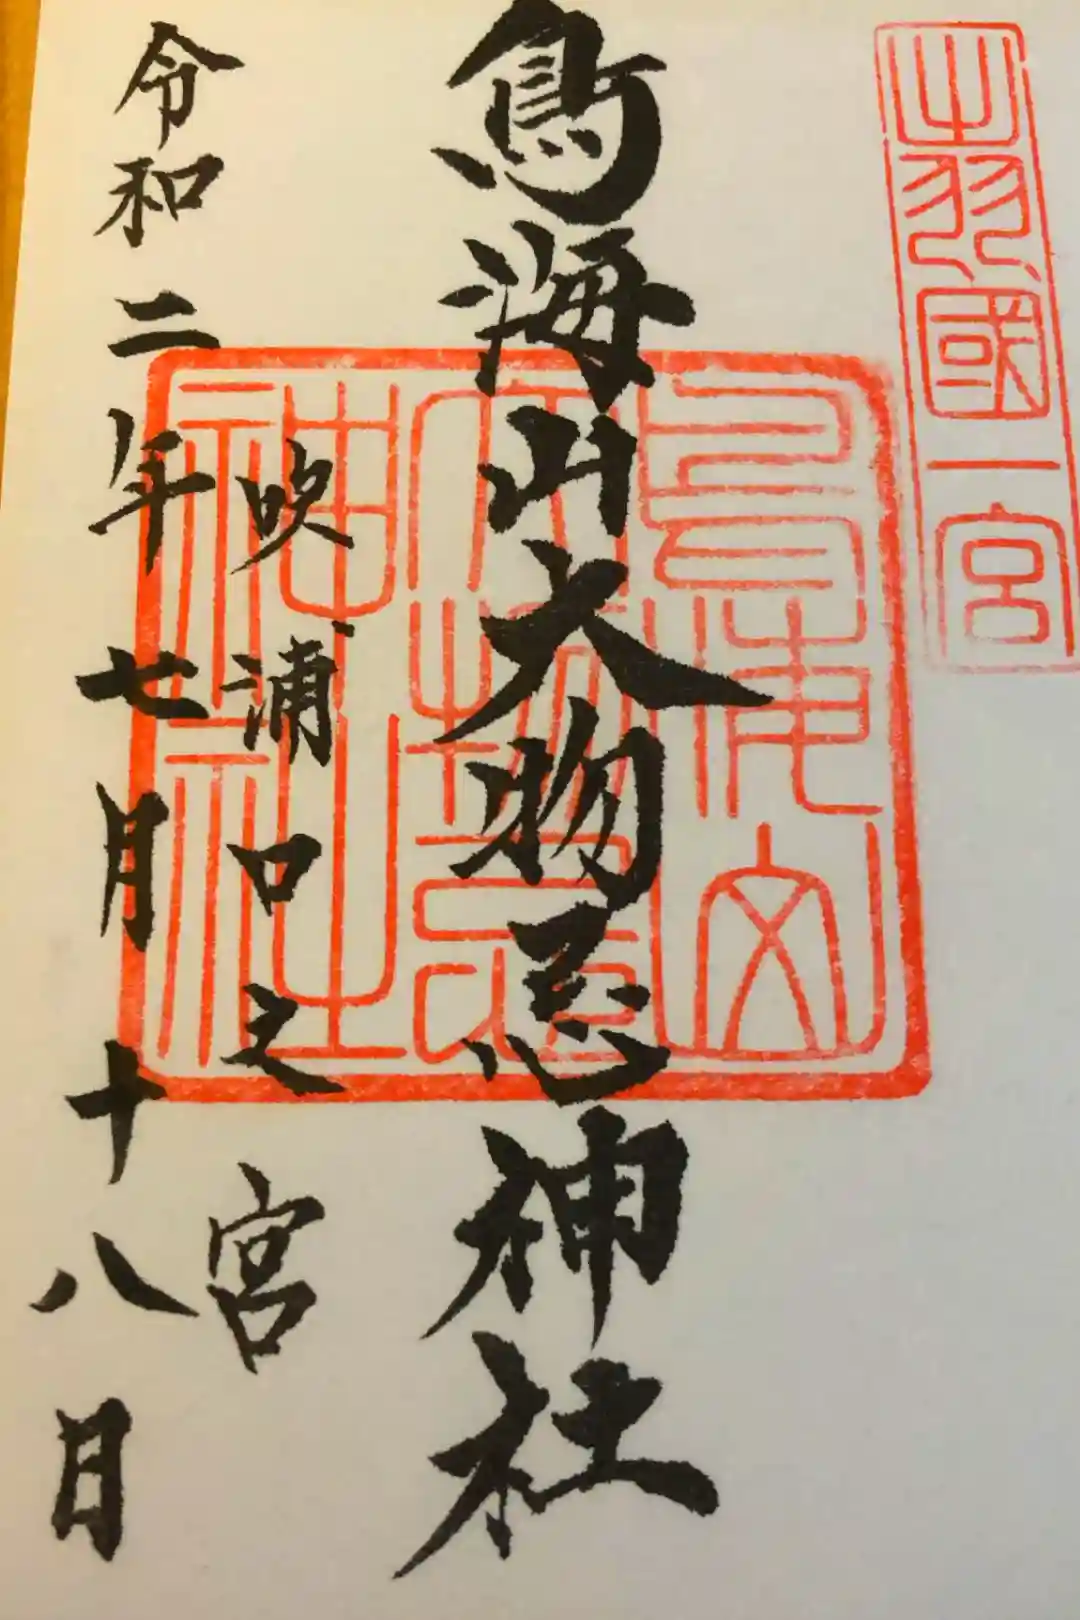 出羽國一宮
鳥海山大物忌神社
吹浦口之宮
令和二年七月十八日
鳥海山
大物忌
神社